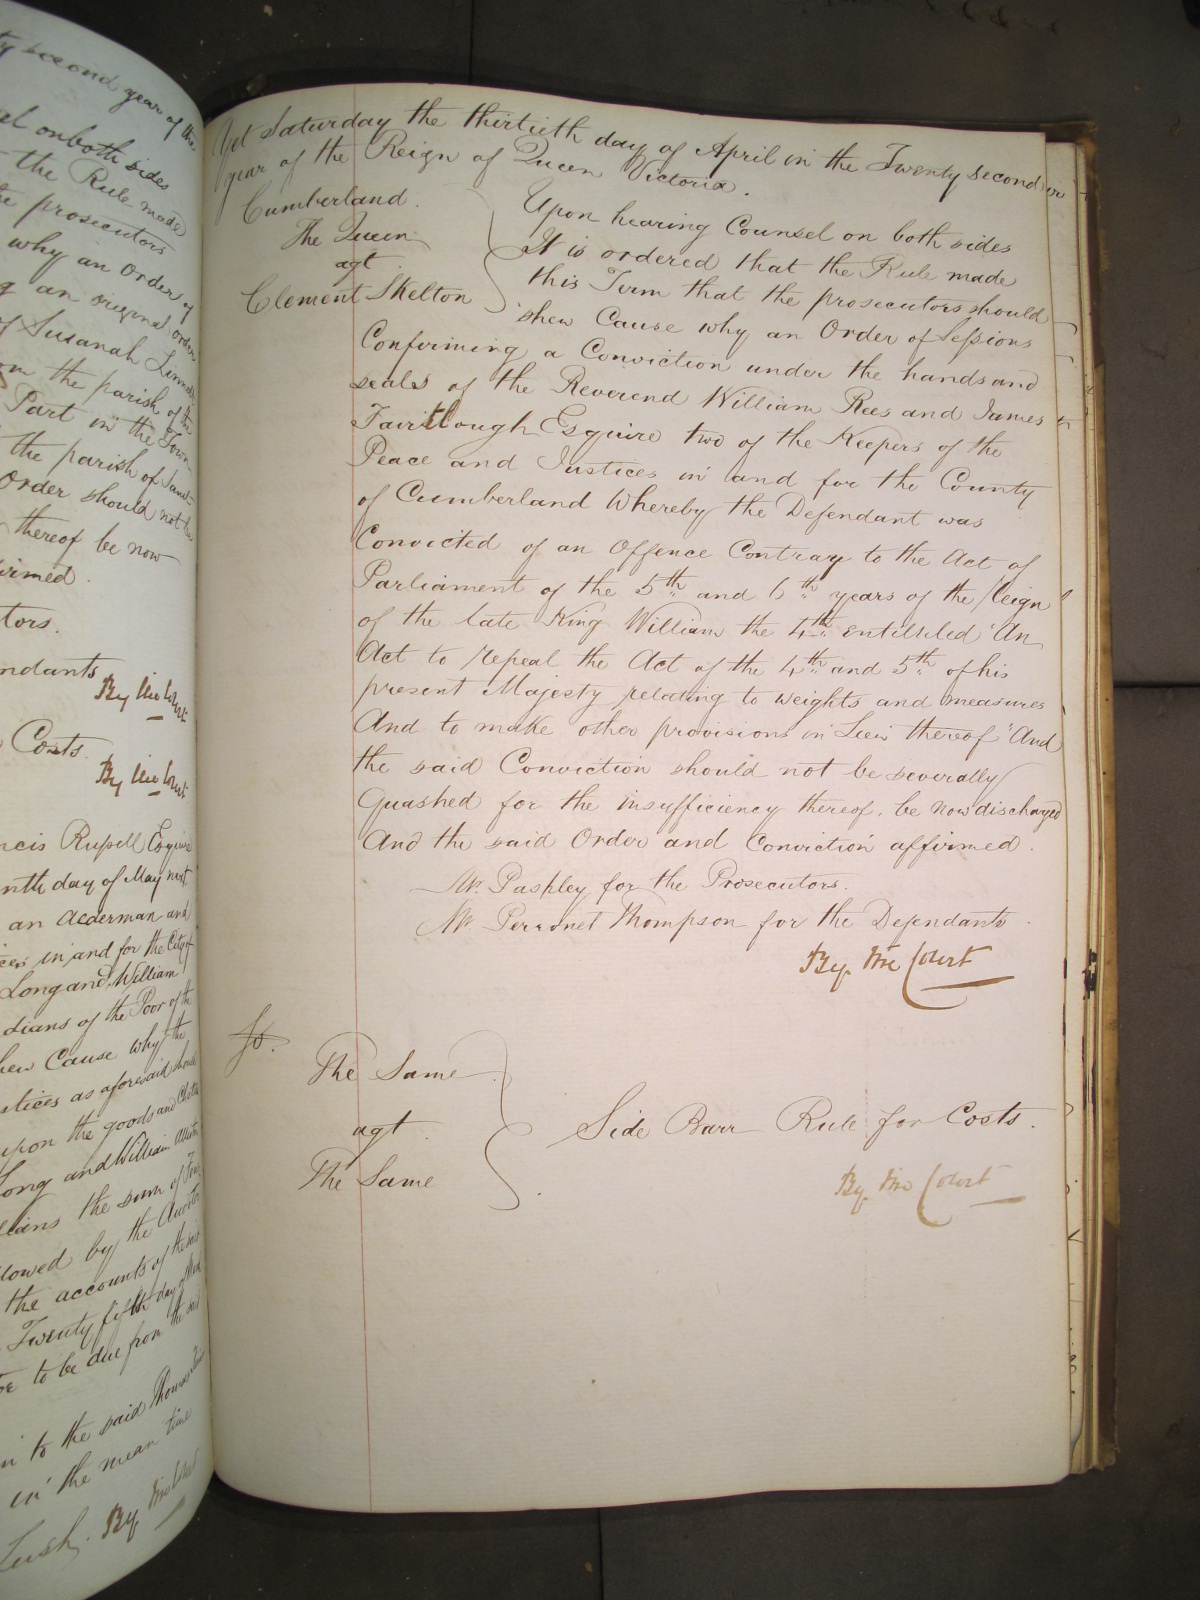 ty second year of the
el on both sides
the Rule made
prosecutors
why an Order of
an original order
of Susanah Linne
the parish of the
Part in the Town
the parish of
Order should not be
thereof be now
irmed.
tors.
ndants
By the Court
Costs.
By the Court
ncis Russell Esquire
nth day of May next
an Alderman and
in and for the City of
Long and William
dians of the Poor of the
hew Cause why the
stices as aforesaid should
upon the goods and
Long and William
the sum of
lowed by the Auditor
the accounts of the said
Twenty fifth day of
to be due from the said
to the said Thomas
in the mean time
Lush. By the Court
Yet Saturday the thirtieth day of April in the Twenty second
year of the Reign of Queen Victoria.
Cumberland.
The Queen
agt
Clement Skelton
Upon hearing Counsel on both sides
It is ordered that the Rule made
this Term that the prosecutors should
shew Cause why an Order of Sessions
Confirming a Conviction under the hands and
seals of the Reverend William Rees and James
Fairtlough Esquire two of the Keepers of the
Peace and Justices in and for the County
of Cumberland Whereby the Defendant was
Convicted of an Offence Contrary to the Act of
Parliament of the 5th and 6th years of the Reign
of the late King William the 4th entitled "An
Act to repeal the Act of the 4th and 5th of his
present Majesty relating to weights and measures
And to make other provisions in Lieu thereof" And
the said Conviction should not be severally
Quashed for the insufficiency thereof, be now discharged
And the said Order and Conviction affirmed.
Mr. Pashley for the Prosecutors.
Mr Perronet Thompson for the Defendants.
By the Court
The Same
agt
The Same
Side Barr Rule for Costs.
By the Court